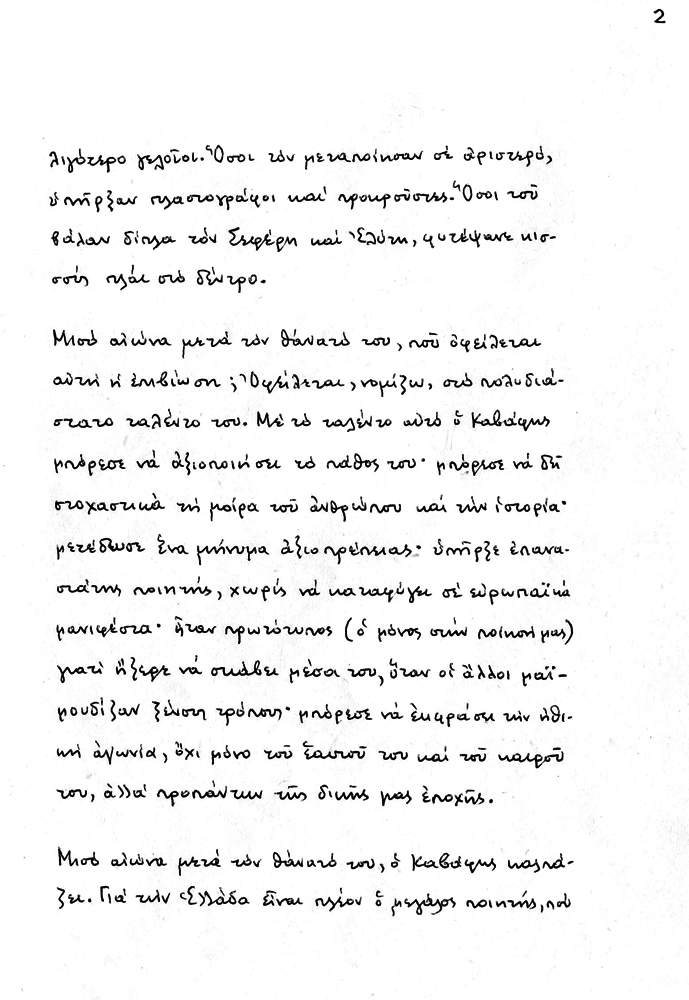 2
λιγότερο γελοῖοι. Ὅσοι τόν μεταποίησαν σέ ἀριστερό,
ὑπῆρξαν πλαστογράφοι καί προκρούστες. Ὅσοι τοῦ
βάλαν δίπλα τόν Σεφέρη καί Ἐλύτη, φυτέψανε κισ-
σούς πλάι στό δέντρο.
Μισό αἰώνα μετά τόν θάνατό του, ποῦ ὀφείλεται
αὐτή ἡ ἐπιβίωση; Ὀφείλεται, νομίζω, στό πολυδιά-
στατο ταλέντο του. Μέ τό ταλέντο αὐτό ὁ Καβάφης
μπόρεσε νά ἀξιοποιήσει τό πάθος του· μπόρεσε νά δῆ
στοχαστικά τή μοίρα τοῦ ἀνθρώπου καί τήν ἱστορία·
μετέδωσε ἕνα μήνυμα ἀξιοπρέπειας· ὑπῆρξε ἐπανα-
στάτης ποιητής, χωρίς νά καταφύγει σέ εὐρωπαϊκά
μανιφέστα· ἦταν πρωτότυπος (ὁ μόνος στήν ποίησή μας)
γιατί ἤξερε νά σκάβει μέσα του, ὅταν οἱ ἄλλοι μαϊ-
μουδίζαν ξένους τρόπους· μπόρεσε νά ἐκφράσει τήν ἠθι-
κή ἀγωνία, ὄχι μόνο τοῦ ἑαυτοῦ του καί τοῦ καιροῦ
του, ἀλλά προπάντων τῆς δικῆς μας ἐποχῆς.
Μισό αἰώνα μετά τόν θάνατό του, ὁ Καβάφης καλπά-
ζει. Γιά τήν Ἑλλάδα εἶναι πλέον ὁ μεγάλος ποιητής, πού